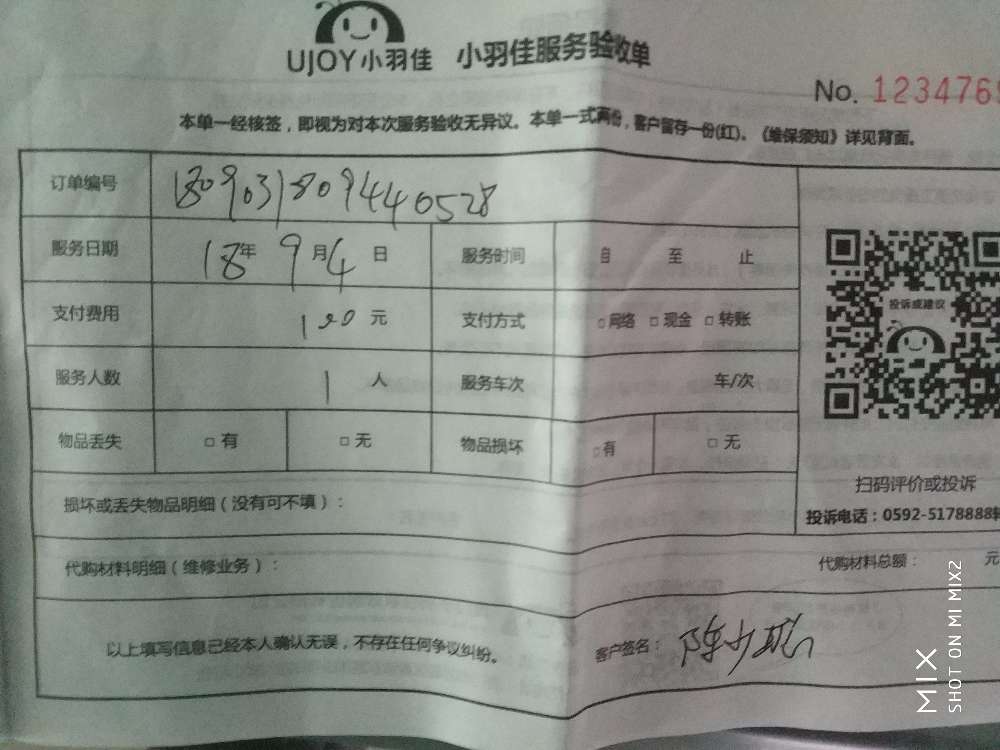 UJOY小羽佳 小羽佳服务验收单
No. 1234769
本单一经核签，即视为对本次服务验收无异议。本单一式两份，客户留存一份(红)。《维保须知》详见背面。
订单编号 180903180944 0528
服务日期 18年 9月4日 服务时间 自 至 止
支付费用 100元 支付方式 □网络 □现金 □转账
投诉或建议
服务人数 1人 服务车次 车/次
物品丢失 □有 □无 物品损坏 □有 □无
扫码评价或投诉
损坏或丢失物品明细（没有可不填）：
投诉电话：0592-5178888转
代购材料明细（维修业务）： 代购材料总额： 元
以上填写信息已经本人确认无误，不存在任何争议纠纷。 客户签名：陈少聪
MIX
SHOT ON MI MIX2